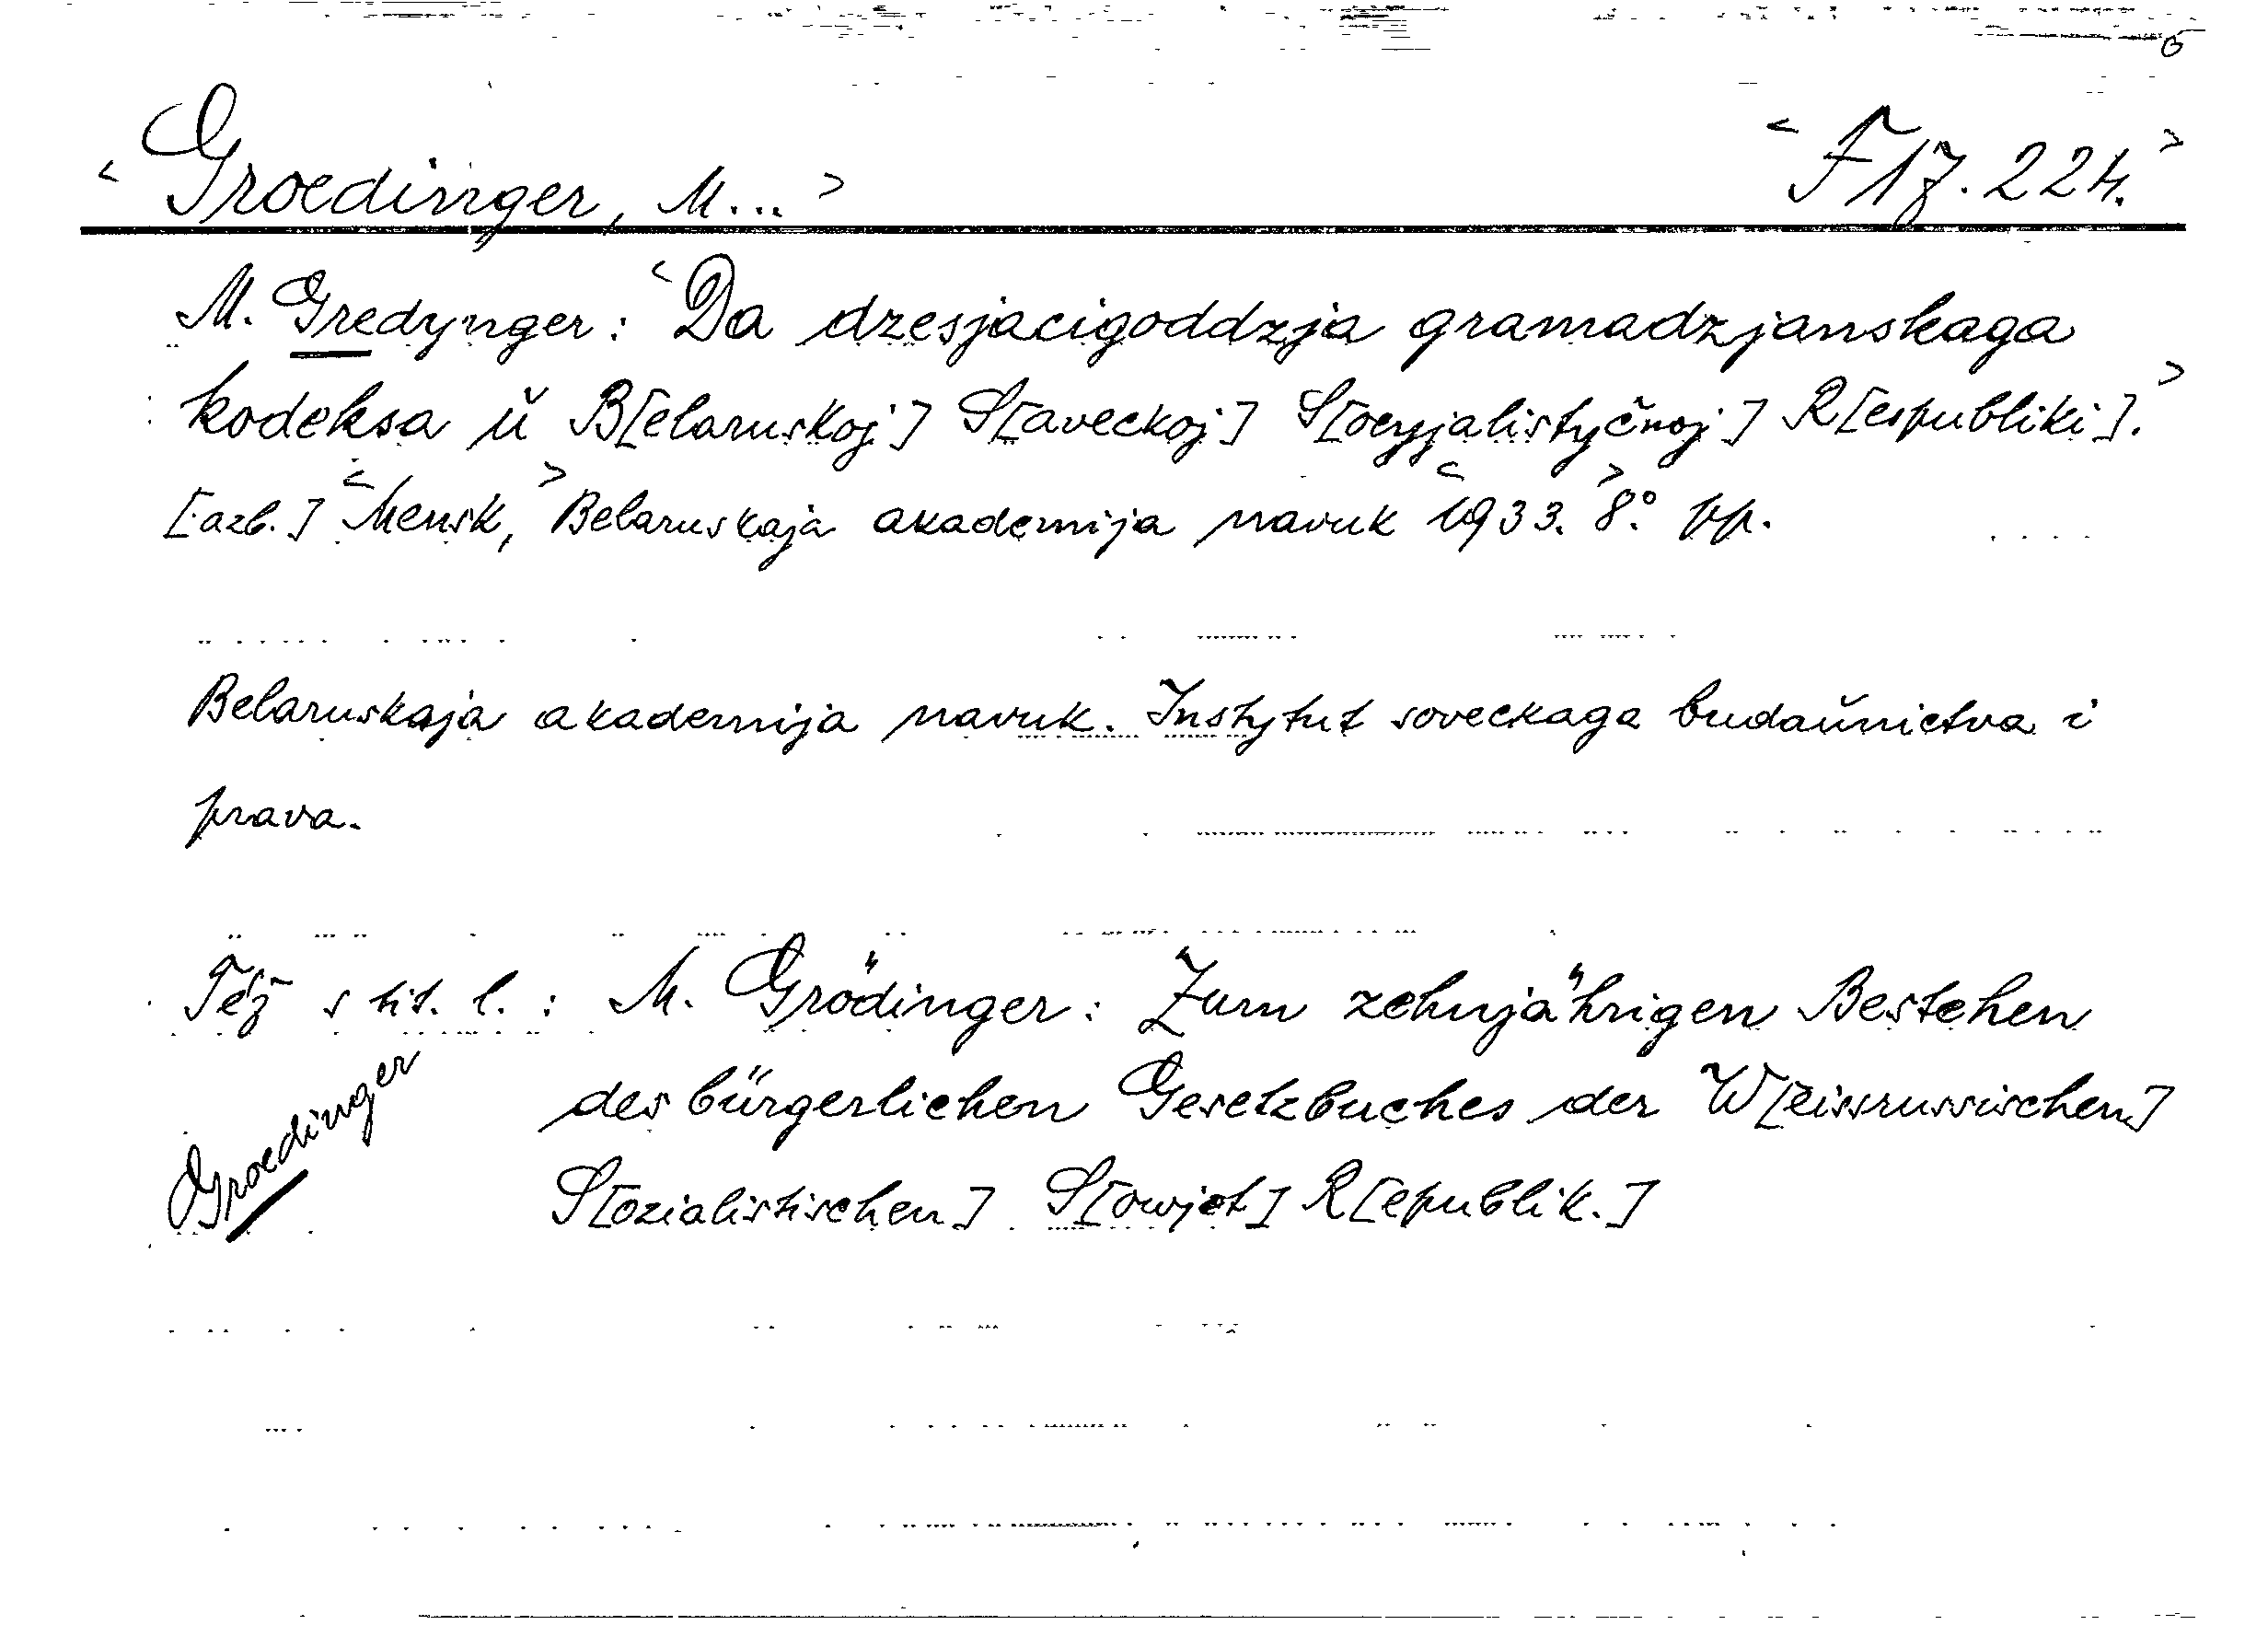 <Groedinger, M...> <F 17.224.>
M. Gredynger: <Da dzesjacigoddzja gramadzjanskaga
kodeksa ŭ B[elaruskoj] S[aveckoj] S[ocyjalistyčnoj] R[espubliki].>
[azb.] <Mensk,> Belaruskaja akademija navuk <1933.> 8.° pp.
Belaruskaja akademija navuk. Instytut soveckaga budaŭnictva i
prava.
Též s tit. l.: M. Grödinger: Zum zehnjährigen Bestehen
des bürgerlichen Gesetzbuches der W[eissrussischen]
S[ozialistischen] S[owjet] R[epublik.]
Groedinger